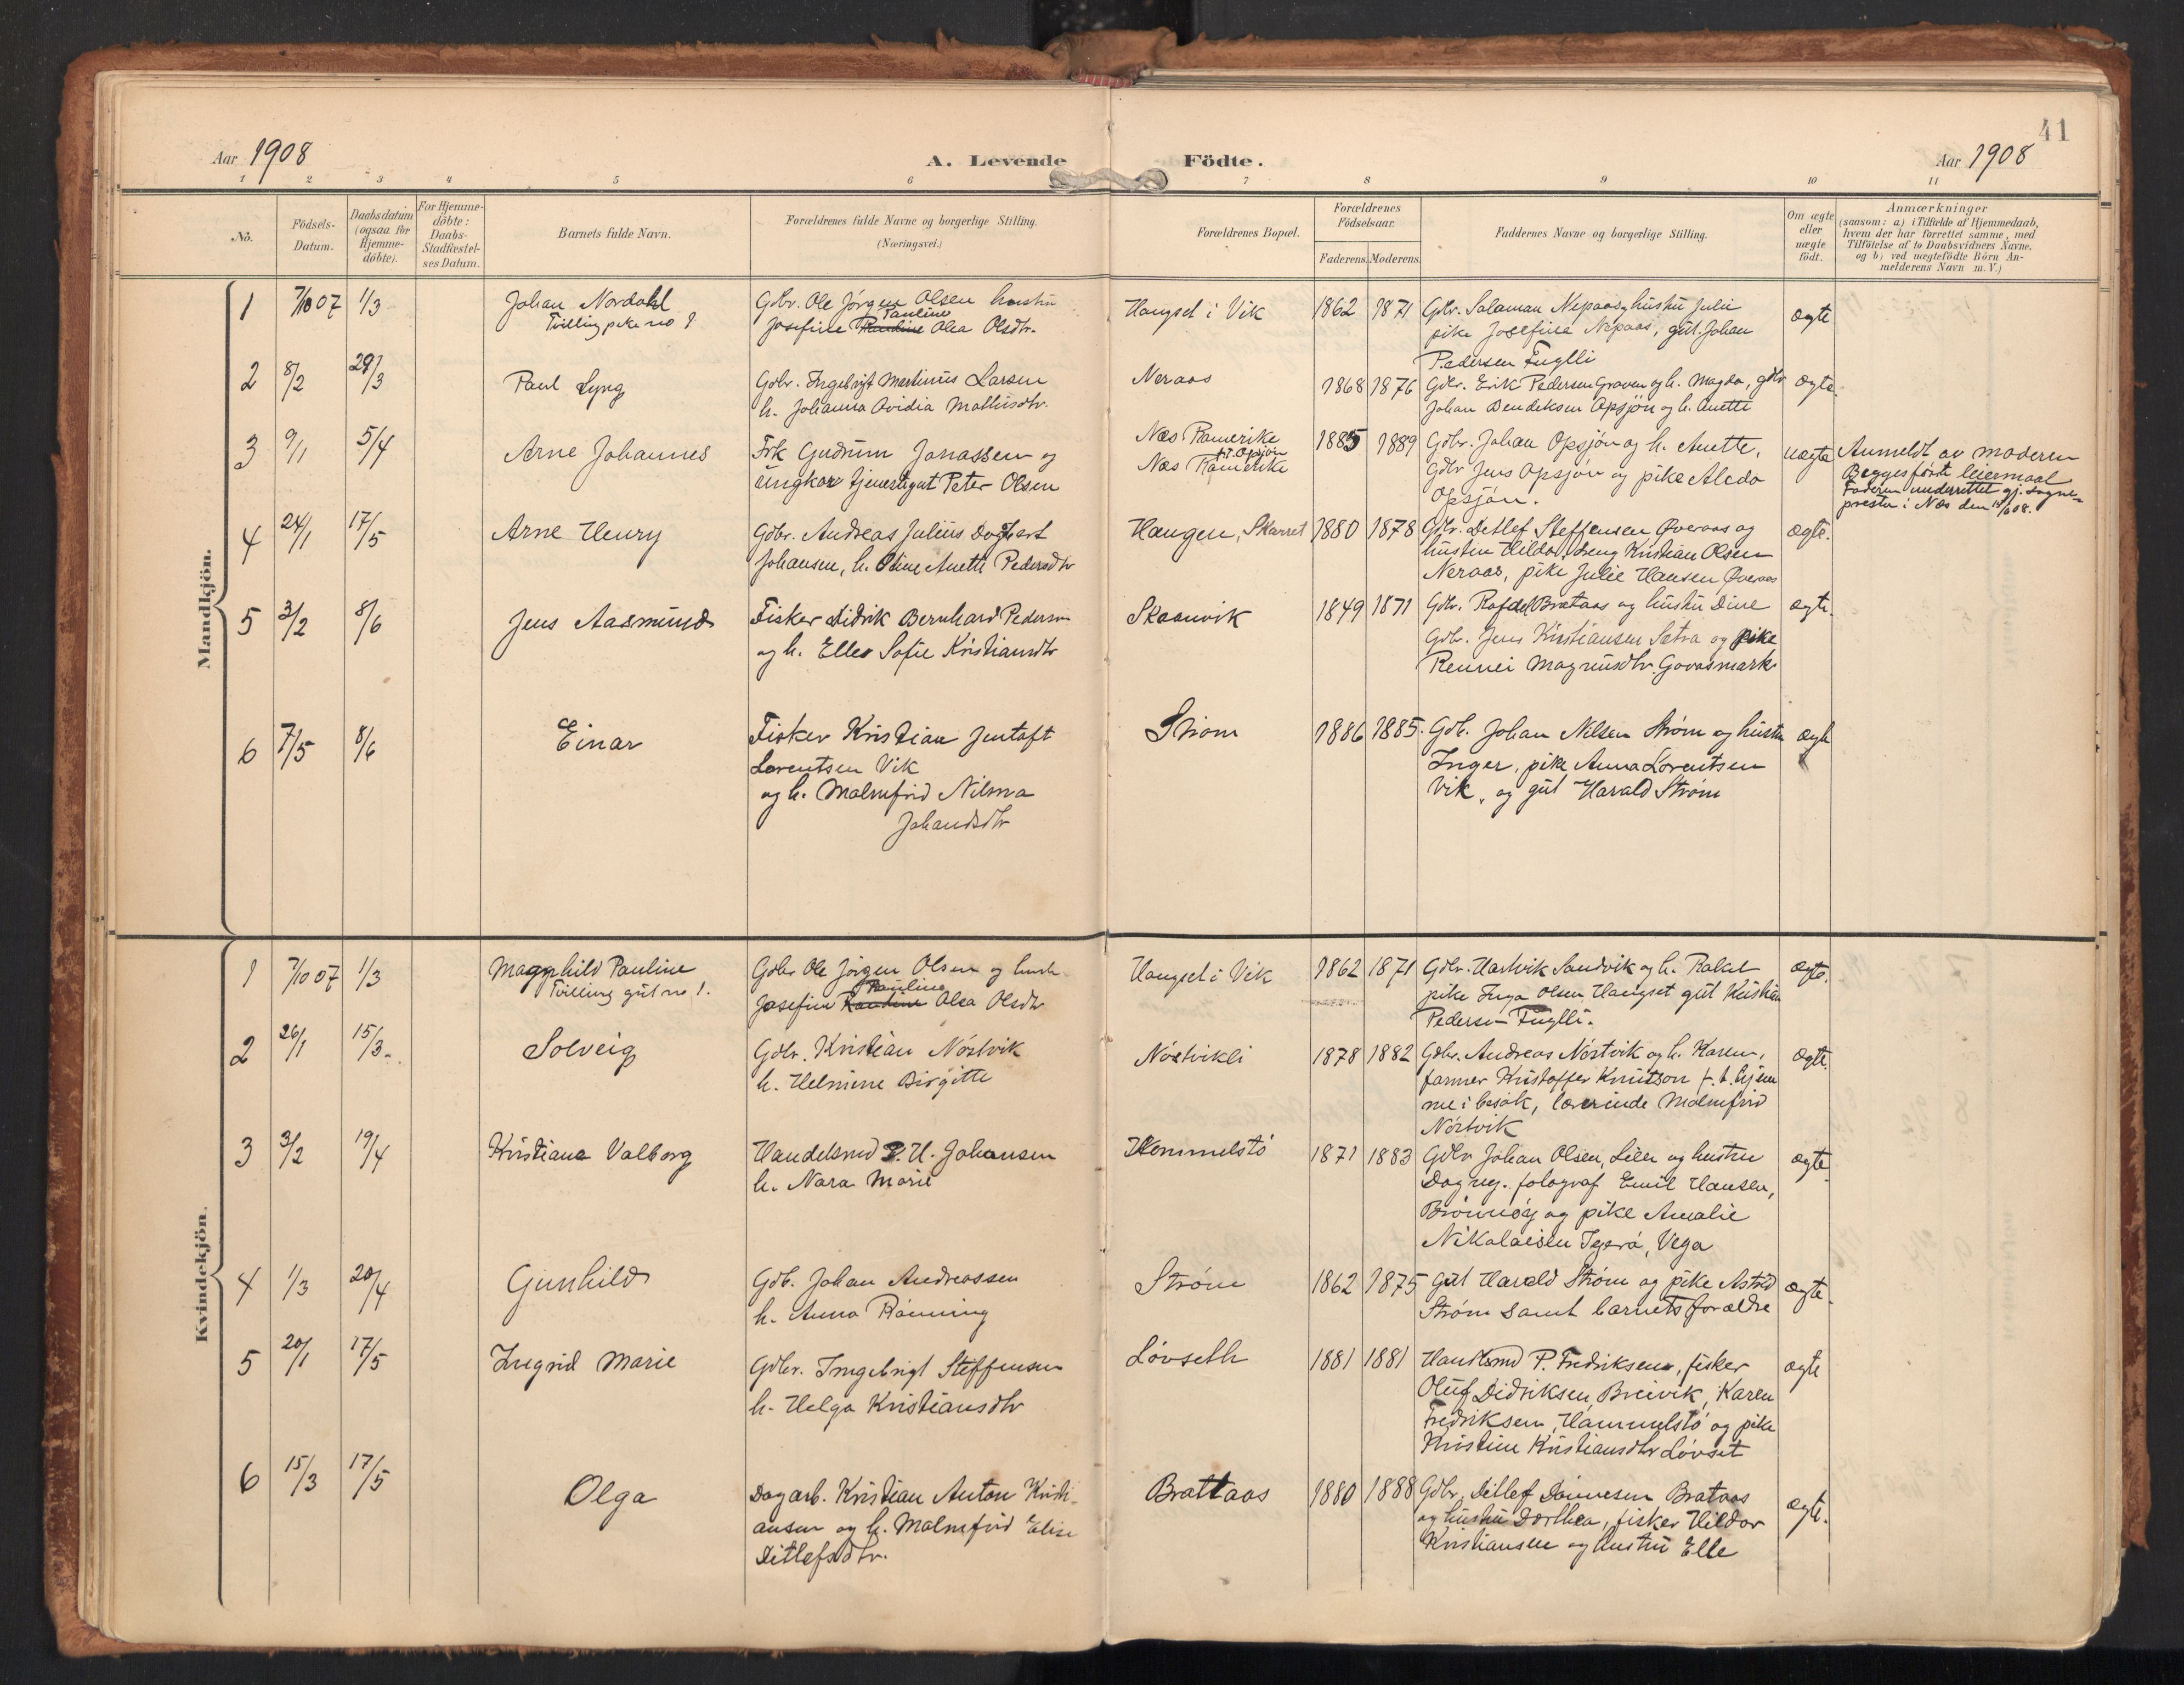 41
Aar 1908
A. Levende Födte.
Aar 1908
1 2 3 4 5 6 7 8 9 10 11
No.
Födsels-
Datum.
Daabsdatum
(ogsaa for
Hjemme-
döbte).
For Hjemme-
döbte:
Daabs-
Stadfæstel-
ses Datum.
Barnets fulde Navn.
Forældrenes fulde Navne og borgerlige Stilling.
(Næringsvei.)
Forældrenes Bopæl.
Forældrenes
Födselsaar.
Faderens. Moderens.
Faddernes Navne og borgerlige Stilling.
Om ægte
eller
uægte
födt.
Anmærkninger
(saasom: a) i Tilfælde af Hjemmedaab,
hvem der har forrettet samme, med
Tilföielse af to Daabsvidners Navne,
og b) ved uægtefödte Börn An-
melderens Navn m. V.)
Mandkjön.
1 7/10 07 1/3 Johan Nordahl
Tvilling pike no 1
Gdbr. Ole Jörgen Olsen hustru
Pauline
Josefine Olea Olsdtr.
Hangset i Vik 1862 1871
Gdbr. Salaman Nepaas og hustru Julie
pike Josefine Nepaas, gut Johan
Pedersen Fuglli
ægte
2 8/2 29/3 Paul Lyng
Gdbr. Ingebrigt Martinus Larsen
h. Johanna Ovidia Mathisdtr.
Neraas 1868 1876
Gdbr. Erik Pedersen Graven og h. Magda, gdbr
Johan Bendiksen Opsjön og h. Anette
ægte.
3 9/1 5/4 Arne Johannes
Frk Gudrun Jonassen og
ungkar tjenestegut Peter Olsen
Næs Ramerike
Opsjön
Næs Ramerike
1885 1889
Gdbr. Johan Opsjön og h. Anette,
Gdbr Jens Opsjön og pike Aleda
Opsjön.
uægte
Anmeldt av moderen
Begges förste leiermaal
Faderen underrettet gj. sogne-
presten i Næs den
4 24/1 17/5 Arne Henry
Gdbr. Andreas Julius Dagbert
Johansen, h. Oline Anette Pedersdtr
Haugen, Skarret 1880 1878
Gdbr. Detlef Steffensen Øveraas og
hustru Hilda, dreng Kristian Olsen
Neraas, pike Julie Hansen Øveraas
ægte.
5 3/2 8/6 Jens Aasmund
Fisker Didrik Bernhard Pedersen
og h. Elles Sofie Kristiansdtr
Skaanvik 1849 1871
Gdbr. Rafael Brataas og hustru Dine
Gdbr. Jens Kristiansen Sætra og pike
Rennei Magnusdtr. Govasmark
ægte.
6 7/5 8/6 Einar
Fisker Kristian Jentoft
Lorentsen Vik
og h. Malmfrid Nilma
Johansdtr
Strøm 1886 1885.
Gdb. Johan Nilsen Strøm og hustru
Inger, pike Anna Lorentsen
Vik, og gut Harald Strøm
ægte
Kvindekjön.
1 7/10 07 1/3 Magnhild Pauline
Tvilling gut no 1.
Gdbr Ole Jörgen Olsen og hustr.
Pauline
Josefine Olea Olsdtr
Hangset i Vik 1862 1871
Gdbr. Hartvik Sandvik og h. Rakel
pike Inga Olsen Hangset gut Kristian
Pedersen Fuglli.
ægte.
2 26/1 15/3. Solveig
Gdbr. Kristian Nöstvik
h. Helmine Birgitte
Nöstvikli 1878 1882
Gdbr. Andreas Nöstvik og h. Karen,
farmer Kristoffer Knutson f. t. hjem
me i besök, lærerinde Malmfrid
Nöstvik
ægte.
3 3/2 19/4 Kristiane Valborg
Handelsmd P. H. Johansen
h. Nara Marie
Hommelstö 1871 1883
Gdbr Johan Olsen, Lien og hustru
Dagny. fotograf Emil Hansen,
Brönnöy og pike Amalie
Nikolaisen Igerö, Vega
ægte.
4 1/3 20/4 Gunhild
Gdb. Johan Andreassen
h. Anna Rönning
Strøm 1862 1875
gut Harald Strøm og pike Astrid
Strøm samt barnets forældre
ægte.
5 20/1 17/5 Ingrid Marie
Gdbr. Ingebrigt Steffensen
h. Helga Kristiansdtr
Lövseth 1881 1881
Handelsmd P. Fredriksen, fisker
Oluf Didriksen, Breivik, Karen
Fredriksen, Hommelstö og pike
Kristine Kristiansdtr Lövset
ægte
6 15/3 17/5 Olga
Dagarb. Kristian Anton Kristi-
ansen og h. Malmfrid Elise
Ditlefsdtr.
Brattaas 1880 1888
Gdbr. Ditlef Dönnesen Brataas
og hustru Dorthea, fisker Hildor
Kristiansen og hustru Elle
ægte.